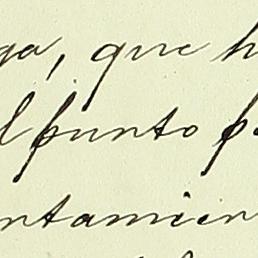 ga, que h
l punto p
ntamien